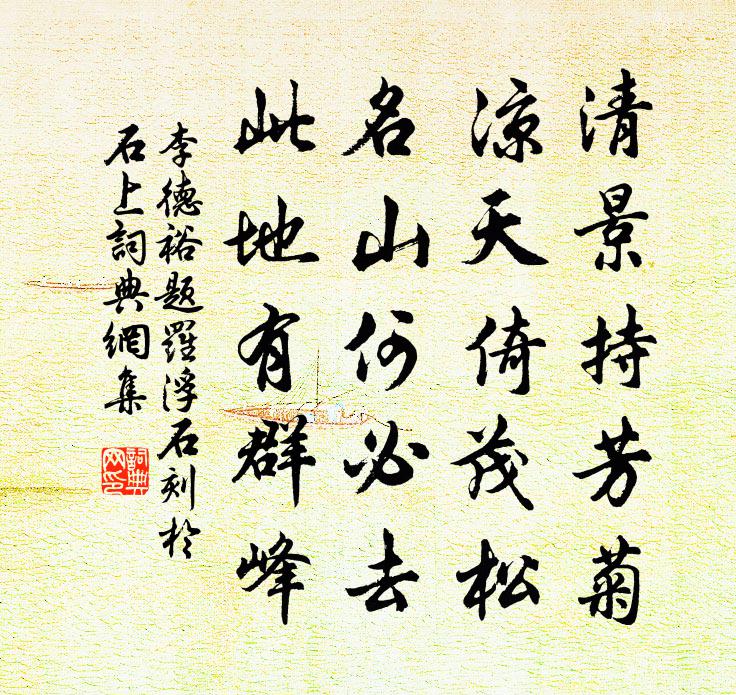 清景持芳菊
涼天倚茂松
名山何必去
此地有群峰
李德裕題羅浮石刻於
石上詞典網集
詞典網印